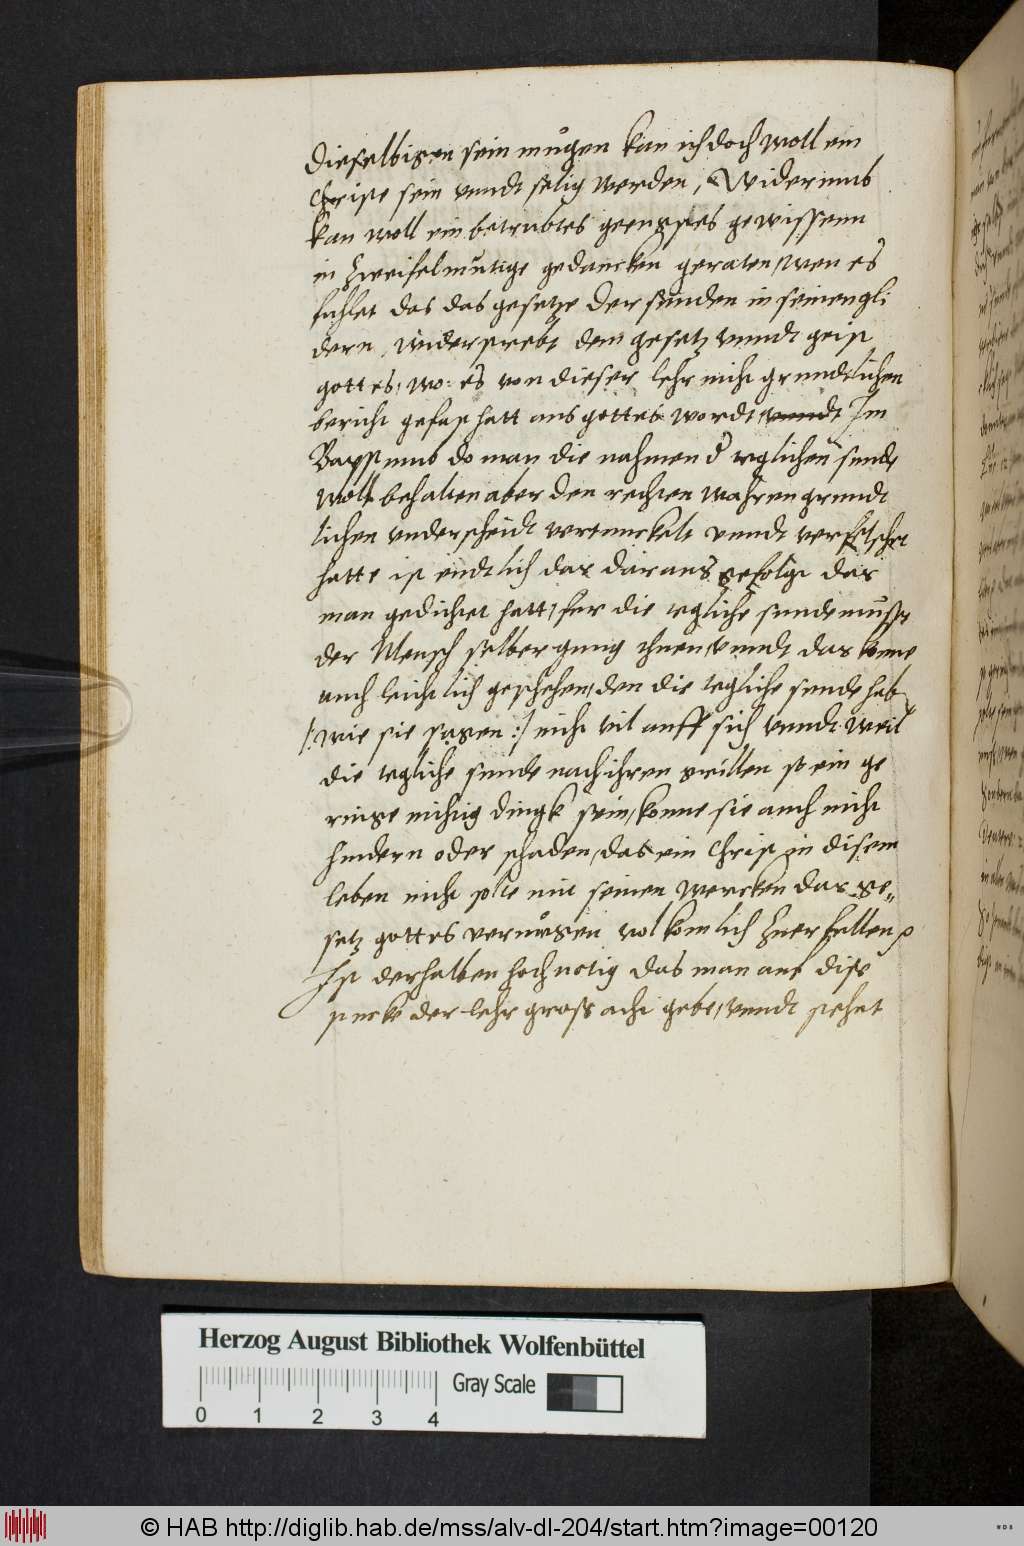 dieselbigen sein mügen kan ich doch woll ein
Christ sein vnndt selig werden, Widerumb
kan woll ein betrubtes geengstes gewissenn
in Zweifelmütige gedancken geraten, wen es
fuhlet das das gesetze der sünden in seinen gli
dern, widerstrebt dem gesetz vnndt geist
gottes, wo es von dieser lehr nicht gründtlichen
bericht gefast hatt aus gottes wordt, vnndt Im
Bapstumb do man die nahmen d teglichen sunde
woll behalten aber den rechten wahren grundt
lichen vnderscheidt vertunckelt vnndt verfelschet
hatte ist endtlich das daraus gefolgt das
man gedichtet hatt, fur die tegliche sunde musste
der Mensch selber gnug thuen, vnndt das konne
auch leichtlich geschehen, den die tegliche sunde hab
/: wie sie sagen :/ nicht vil auff sich vnndt weil
die tegliche sunde nach ihren grillen so ein ge
ringe nichtig dingk sein, konne sie auch nicht
hindern oder schaden, das ein Christ in disem
leben nicht solte mit seinen wercken das ge„
setz gottes vermügen volkomlich zu erfullen
Ist derhalben hoch notig das man auf dise
stucke der lehr gross acht gebe, vnndt stehet
Herzog August Bibliothek Wolfenbüttel
Gray Scale
0 1 2 3 4
© HAB http://diglib.hab.de/mss/alv-dl-204/start.htm?image=00120